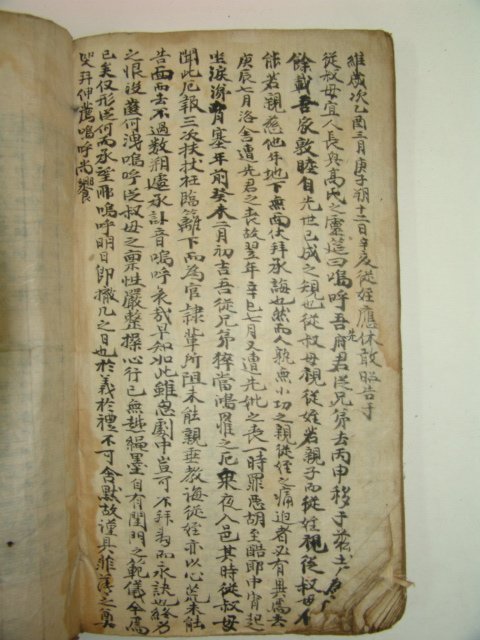 維歲次乙酉三月庚子朔十二日辛亥從姪應休敢昭告于
從叔母宜人長興高氏之靈筵曰嗚呼吾府君從兄弟去丙申移于玆土
餘載吾家敦睦自先世已成之規也從叔母視從姪若親子而從姪視從叔母不
能若親慈他年地下無面仕拜承誨也然而人孰無小功之親從姪之痛迫者必有異焉去
庚辰七月洛舍遭先君之喪故翌年辛巳七月又遭先妣之喪一時罪惡胡至酷耶中宵起
坐淚滂胷塞年前癸未二月初吉吾從兄弟猝當罔罹之厄乘夜入邑其時從叔母
聞此厄報三次扶杖枉臨籬下而爲官隷輩所阻未能親垂教誨從姪亦以心荒未能
告面而去不過數朔遽承訃音嗚呼哀哉早知如此雖怱劇中豈可不拜爲而永訣也終身
之恨设道何溥嗚呼從叔母之稟性嚴整操心行己無越繩墨自有閨門之範儀今焉
已矣仅形從何而承望耶嗚呼明日即撤几之日也於義於禮不可含默故謹具菲薄之奠
哭拜伸薦嗚呼尚饗